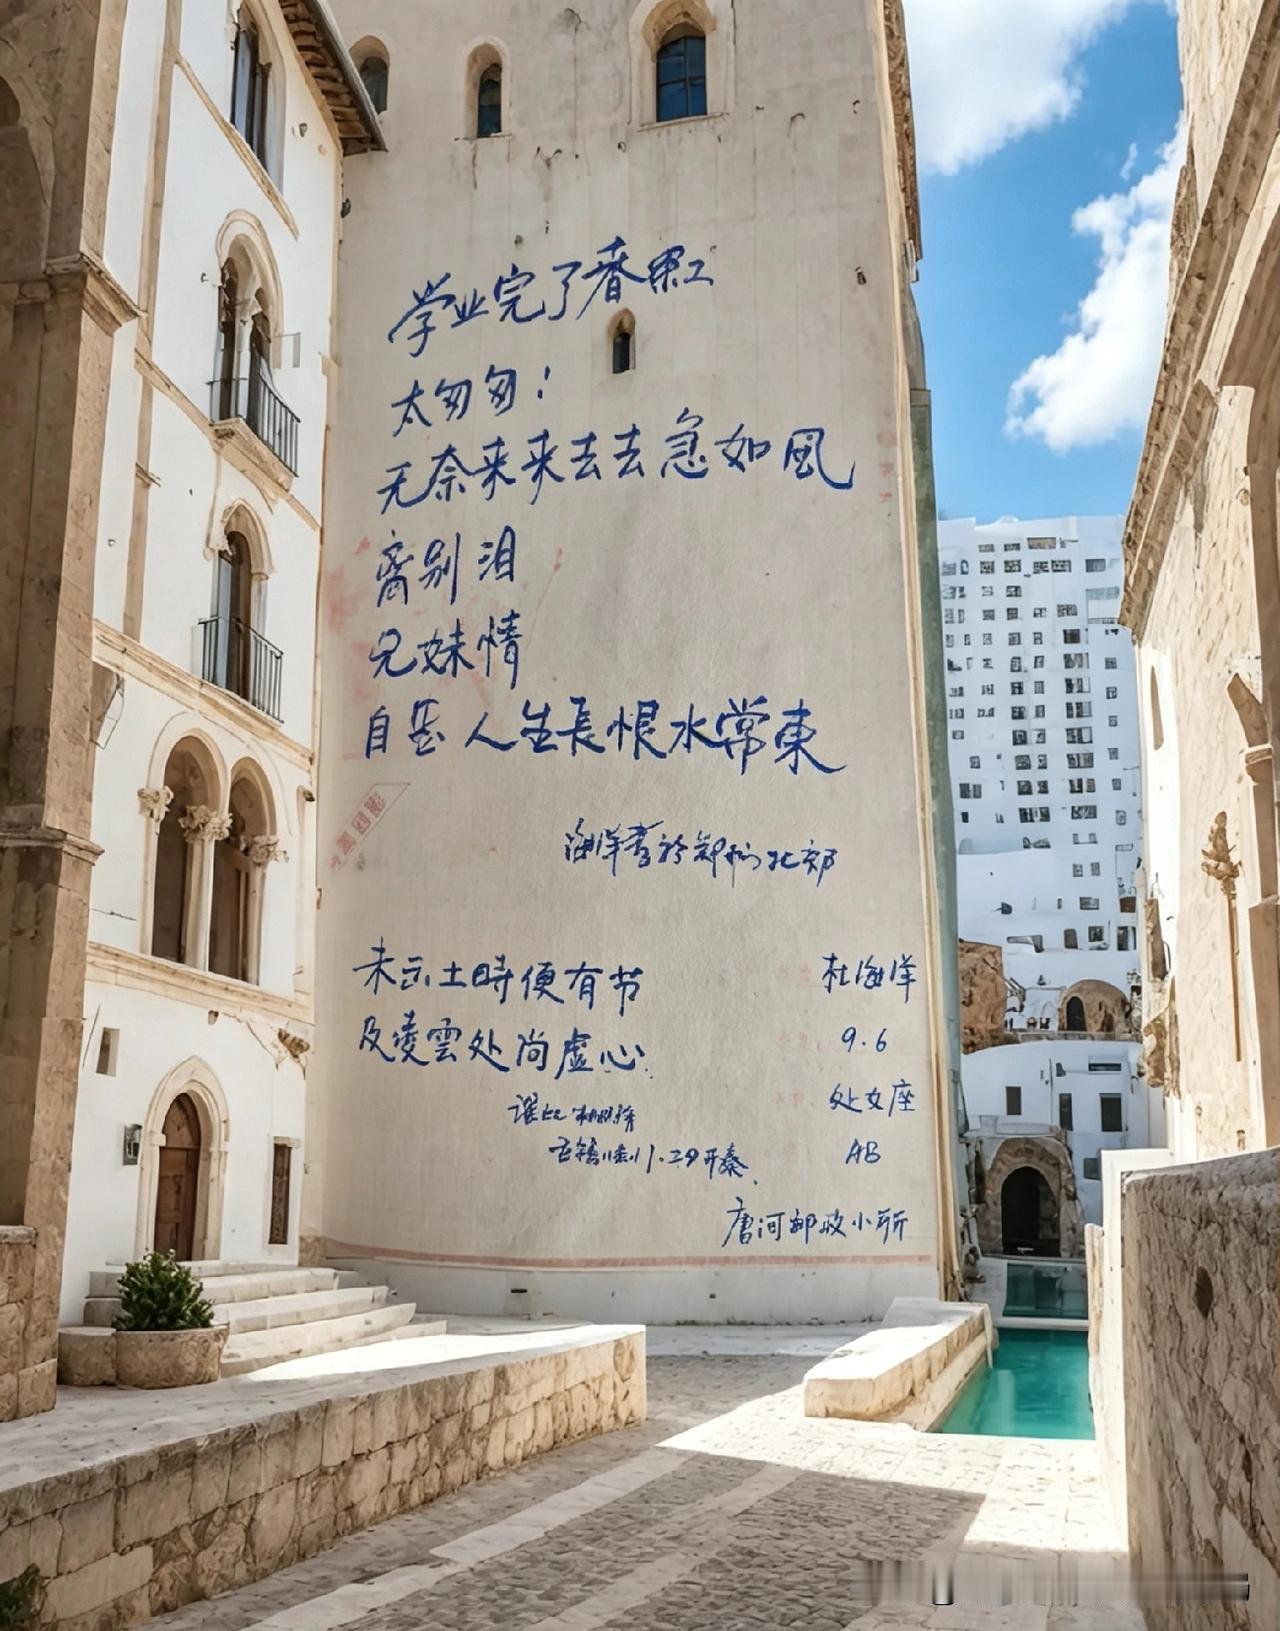 学业完了春
太匆匆！
无奈来来去去急如風
离别泪
兄妹情
自是人生長恨水常東
海洋書於郑州北郊
未示土時便有节
及凌雲处尚虚心
杜海洋
9.6
处女座
AB
1.29开奏
唐河邮政小所